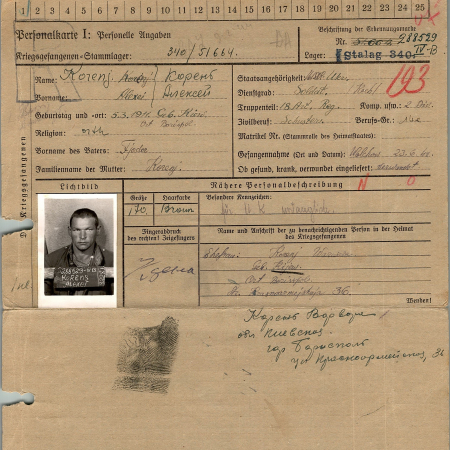 1 2 3 4 5 6 7 8 9 10 11 12 13 14 15 16 17 18 19 20 21 22 23 24 25
Personalkarte I: Personelle Angaben
Kriegsgefangenen-Stammlager: 340/51664.
Beschriftung der Erkennungsmarke
Nr. 288529
Lager: Stalag 340. IV-B
193
Name: Korenj Корень
Vorname: Alexei Алексей
Geburtstag und -ort: 5.3.1911 Geb. Kiew
Ort Borispol
Religion: orth
Vorname des Vaters: Fjodor
Familienname der Mutter: Korenj
Staatsangehörigkeit:
Dienstgrad: Soldat
Truppenteil: 18 Art. Reg. Komp. usw.:
Zivilberuf: Berufs-Gr.: 14a
Matrikel Nr. (Stammrolle des Heimatstaates):
Gefangennahme (Ort und Datum):
Ob gesund, krank, verwundet eingeliefert:
Des Kriegsgefangenen
Lichtbild
288529 IV B
KORENJ
ALEXEI
Nähere Personalbeschreibung
N O
Größe Haarfarbe
170 Braun
Besondere Kennzeichen:
Fingerabdruck
des rechten! Zeigefingers
Name und Anschrift der zu benachrichtigenden Person in der Heimat
des Kriegsgefangenen
Korenj
Geb. Kiew
Ort Borispol
36
Wenden!
Корень Варвара
обл Киевская
гор Борисполь
ул Красноармейская, 36
1
2